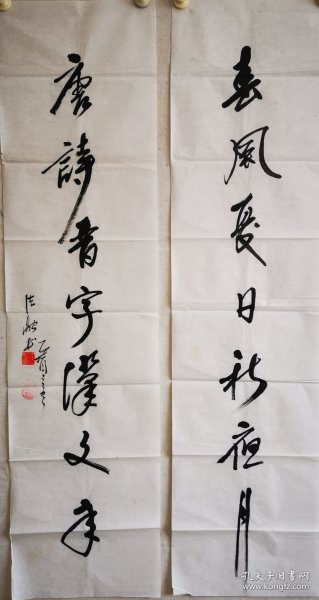 春風夏日秋夜月
唐詩晋字漢文章
乙酉
孔夫子旧书网